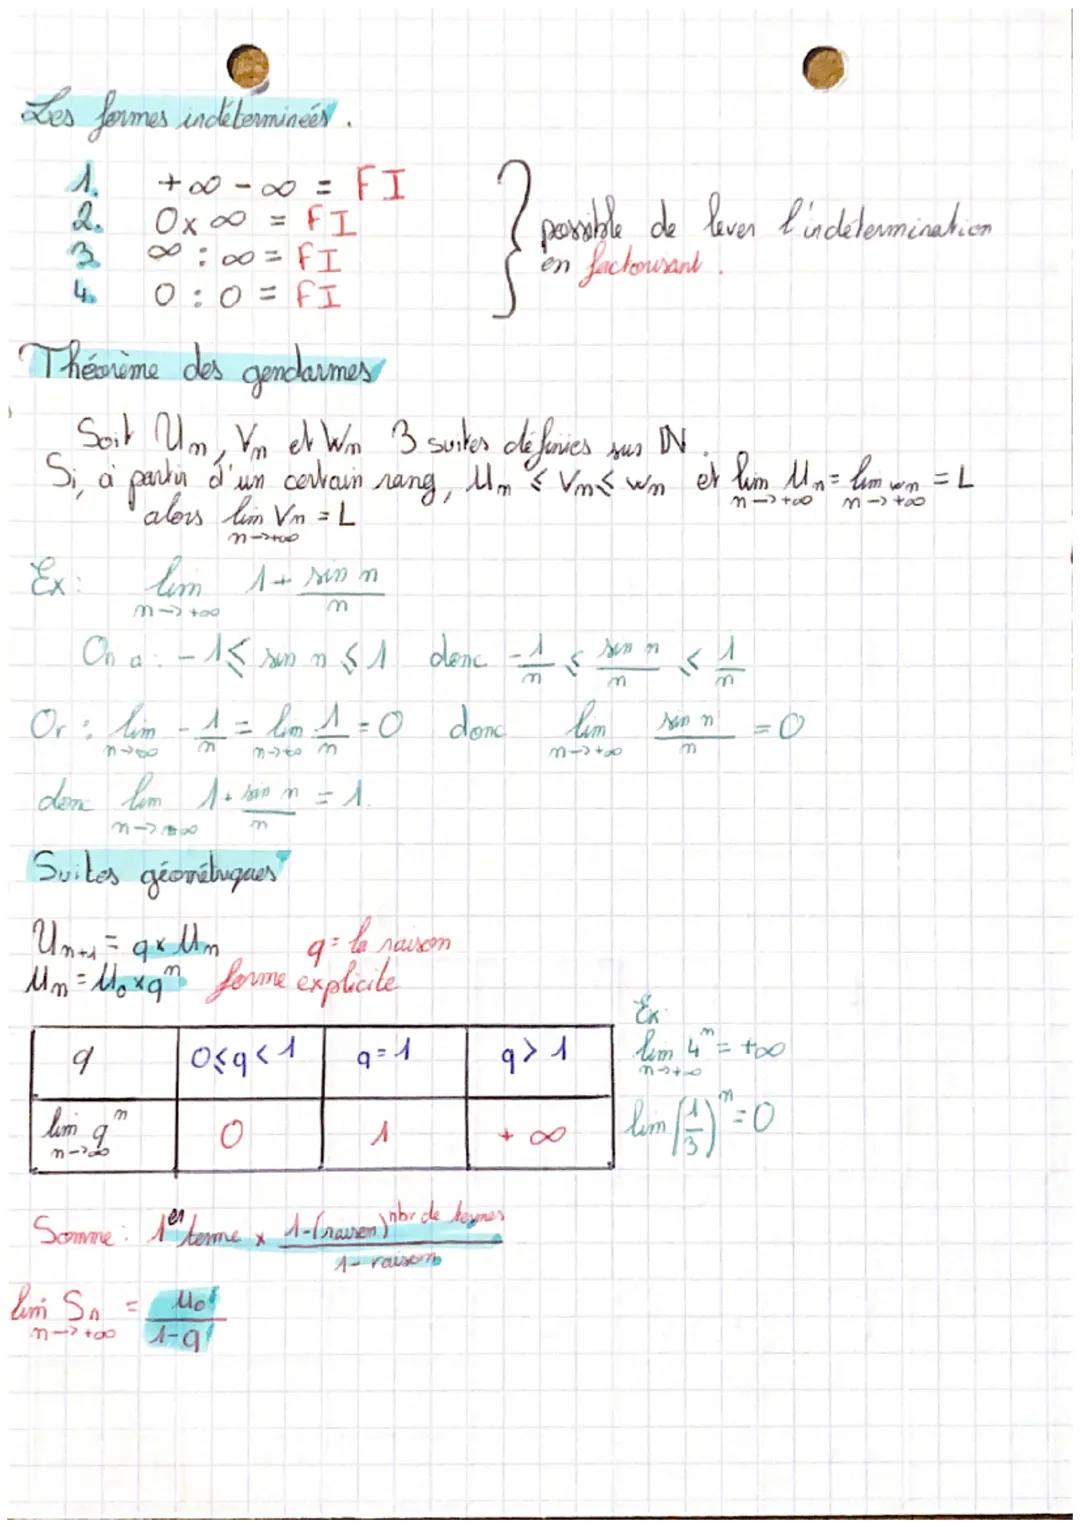 Les formes indéterminées.
1. +∞ - ∞ = FI
2. 0 x ∞ = FI
3 ∞ : ∞ = FI
4. 0 : 0 = FI
possible de lever l'indétermination
en factorisant.
Théorème des gendarmes
Soit Un, Vn et Wn 3 suites définies sur ℕ.
Si, à partir d'un certain rang, Un ≤ Vn ≤ Wn et lim Un = lim wn = L
n→+∞ n→+∞
alors lim Vn = L
n→+∞
Ex: lim 1 + sin n / n
n→+∞
On a : -1 ≤ sin n ≤ 1 donc -1/n ≤ sin n / n ≤ 1/n
Or : lim -1/n = lim 1/n = 0 donc lim sin n / n = 0
n→∞ n→+∞ n→+∞
donc lim 1 + sin n / n = 1.
n→+∞
Suites géométriques
Un+1 = q x Un q = la raison
Un = U0 x qⁿ forme explicite
q 0 ≤ q < 1 q = 1 q > 1
lim qⁿ 0 1 + ∞
n→∞
Ex
lim 4ⁿ = +∞
n→+∞
lim (1/3)ⁿ = 0
Somme : 1er terme x 1-(raison)^nbr de termes / 1 - raison
lim Sn = U0 / 1-q
n→+∞